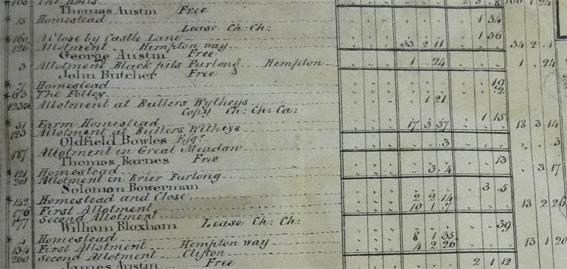 Thomas Austin Free
15 Homestead 1 34
Lease Ch: Ch:
*160 A Close by Castle Lane 1 36
126 Allotment Hempton way 33 2 11 34 2 1
George Austin Free
3 Allotment Black pits Furlong Hempton 1 24 1 24
John Butcher Free
Homestead 19
The Folley
123a Allotment at Bullers Wytheys 1 21
Copy Ch: Ch: Ca:
* 31 Farm Homestead 1 15
123 Allotment at Bullers Witheys 17 3 37 18 3 14
Oldfield Bowles Esqr.
187 Allotment in Great Meadow 3
Thomas Barnes Free
*121 Homestead 13
201 Allotment in Brier Furlong 3 4 3 17
Solomon Bowerman
*142 Homestead and Close 3 5
176 First Allotment 2 2 14
177 Second Allotment 10 1 7 13 2 26
William Bloxham Lease Ch: Ch:
* 4 Homestead 39
134 First Allotment Hempton way 8 1 35
200 Second Allotment Clifton 4 2 26 13 1 20
James Austin Free 2 1 12